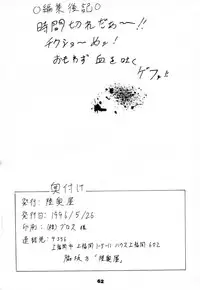 ○編集後記○
時間切れだぁ〜!!
チクショーめッ!
おもわず血を吐く
ゲフッ
奥付け
発行:陸奥屋
発行日:1996/5/26
印刷:(株)プロス 様
連絡先:〒356
上福岡市上福岡
602
「陸奥屋」
62